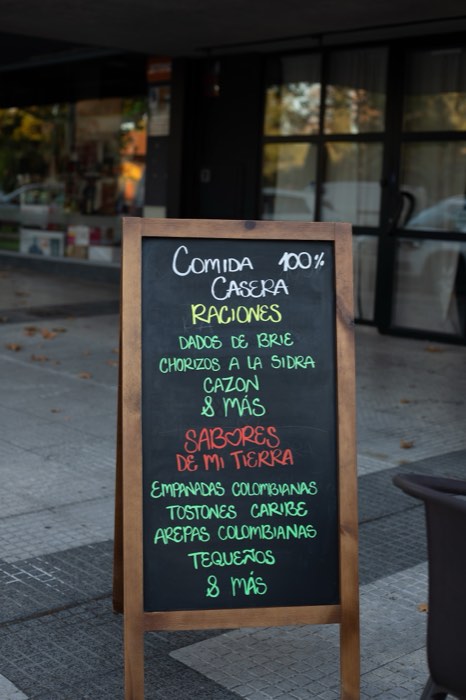 COMIDA 100%
CASERA
RACIONES
DADOS DE BRIE
CHORIZOS A LA SIDRA
CAZON
& MÁS
SABORES
DE MI TIERRA
EMPANADAS COLOMBIANAS
TOSTONES CARIBE
AREPAS COLOMBIANAS
TEQUEÑOS
& MÁS